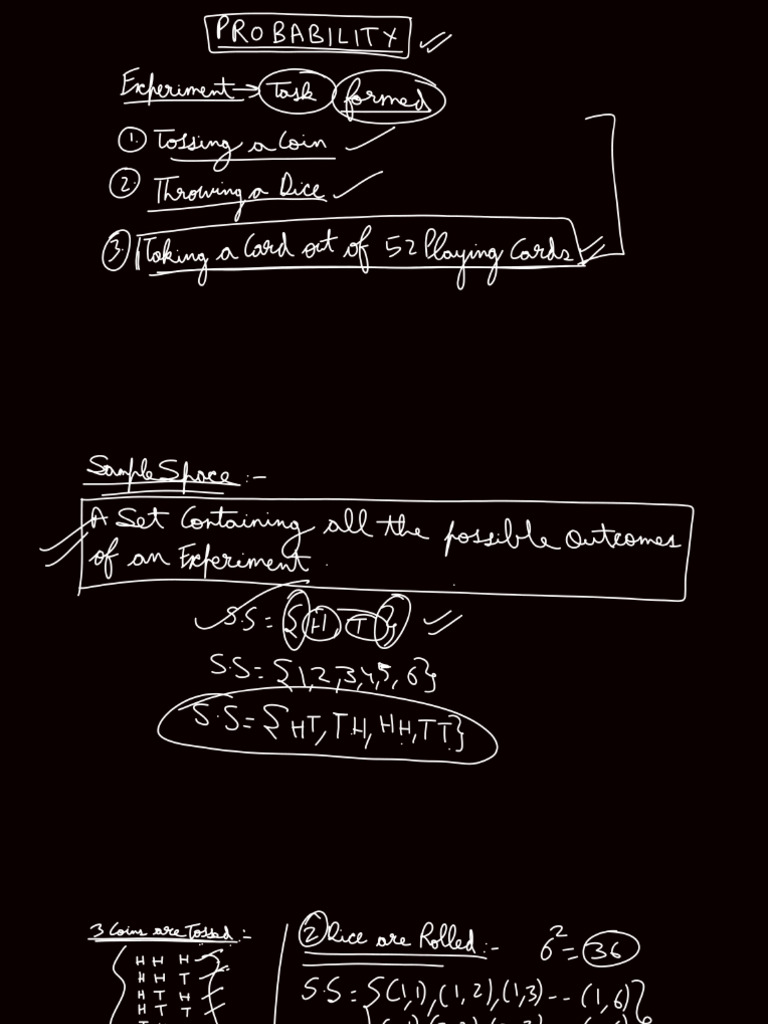 PROBABILITY
Experiment → Task formed
1. Tossing a Coin
2. Throwing a Dice
3. Taking a Card out of 52 Playing Cards
Sample Space :-
A Set Containing all the possible Outcomes
of an Experiment.
S.S = {H, T}
S.S = {1,2,3,4,5,6}
S.S = {HT, TH, HH, TT}
3 Coins are Tossed :-
H H H
H H T
H T H
H T T
2 Dice are Rolled :- 6² = 36
S.S = {(1,1),(1,2),(1,3)--(1,6)